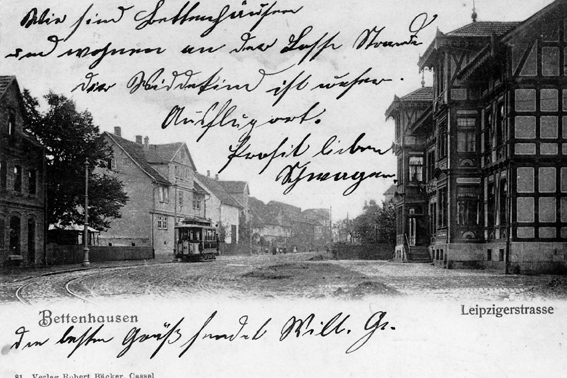 Wir sind Bettenhäusen
und wohnen an der Losse Strand
der Widdekind ist unser
Ausflugsort.
Prosit lieben
Schwager
Bettenhausen
Leipzigerstrasse
den besten Gruß sendet Will. Gr.
81 Verlag Robert Bäcker, Cassel